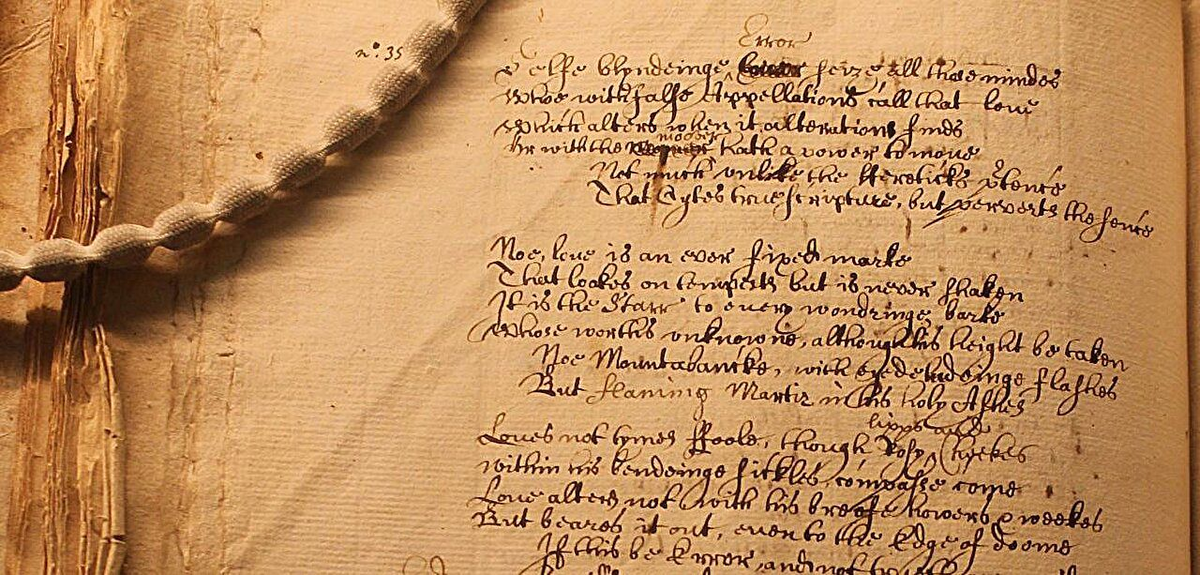 Error
n°. 35
Selfe blyndeinge seize all those mindes
Whoe with false Appellations call that love
Which alters when it alterations finds
moover
Or with the hath a power to move
Not much unlike the Hereticks ptence
That Cytes true scripture, but perverts the sence
Noe, love is an ever fixed marke
That lookes on tempests but is never shaken
It is the Starr to every wondringe barke
Whose worths unknowne, although his height be taken
Noe Mountabancke, with eyedeludeinge flashes
But flaming Martir in his holy Ashes
lipps and
Loves not tymes ffoole, though Rosy Cheekes
within his bendeinge sickles, compasse come
Love alters not with his breife howers & weekes
But beares it out, even to the Edge of doome
If this be Error, and not